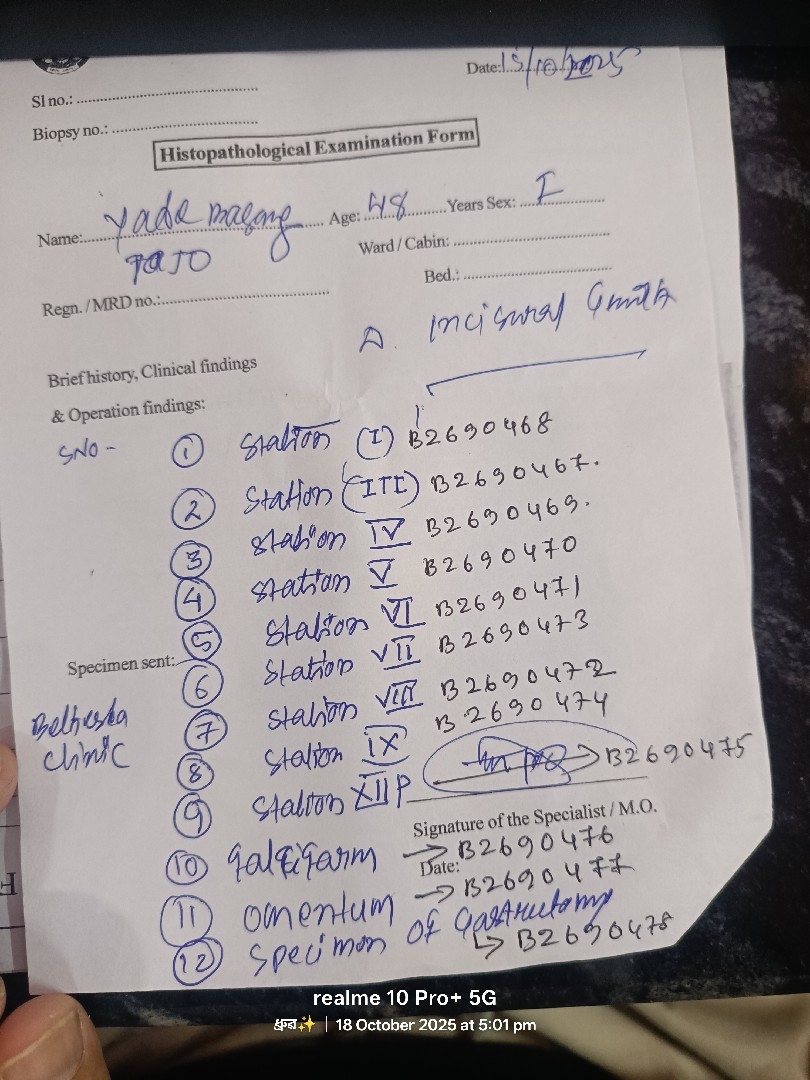 Date: 15/10/2025
Sl no.:
Biopsy no.:
Histopathological Examination Form
Name: Age: 48 Years Sex: F
TAJO
Ward / Cabin:
Bed.:
Regn. / MRD no.:
Δ. incisural
Brief history, Clinical findings
& Operation findings:
SNO - ① Station (I) B2690468
② Station (III) B2690467.
③ Station IV B2690469.
④ Station V B2690470
⑤ Station VI B2690471
Specimen sent:
⑥ Station VII B2690473
⑦ Station VIII B2690472
⑧ Station IX B2690474
⑨ Station XII P B2690475
clinic
Signature of the Specialist / M.O.
⑩ → B2690476
Date:
⑪ omentum → B2690477
⑫ Specimen of Gastrectomy
↳ B2690478
realme 10 Pro+ 5G
18 October 2025 at 5:01 pm